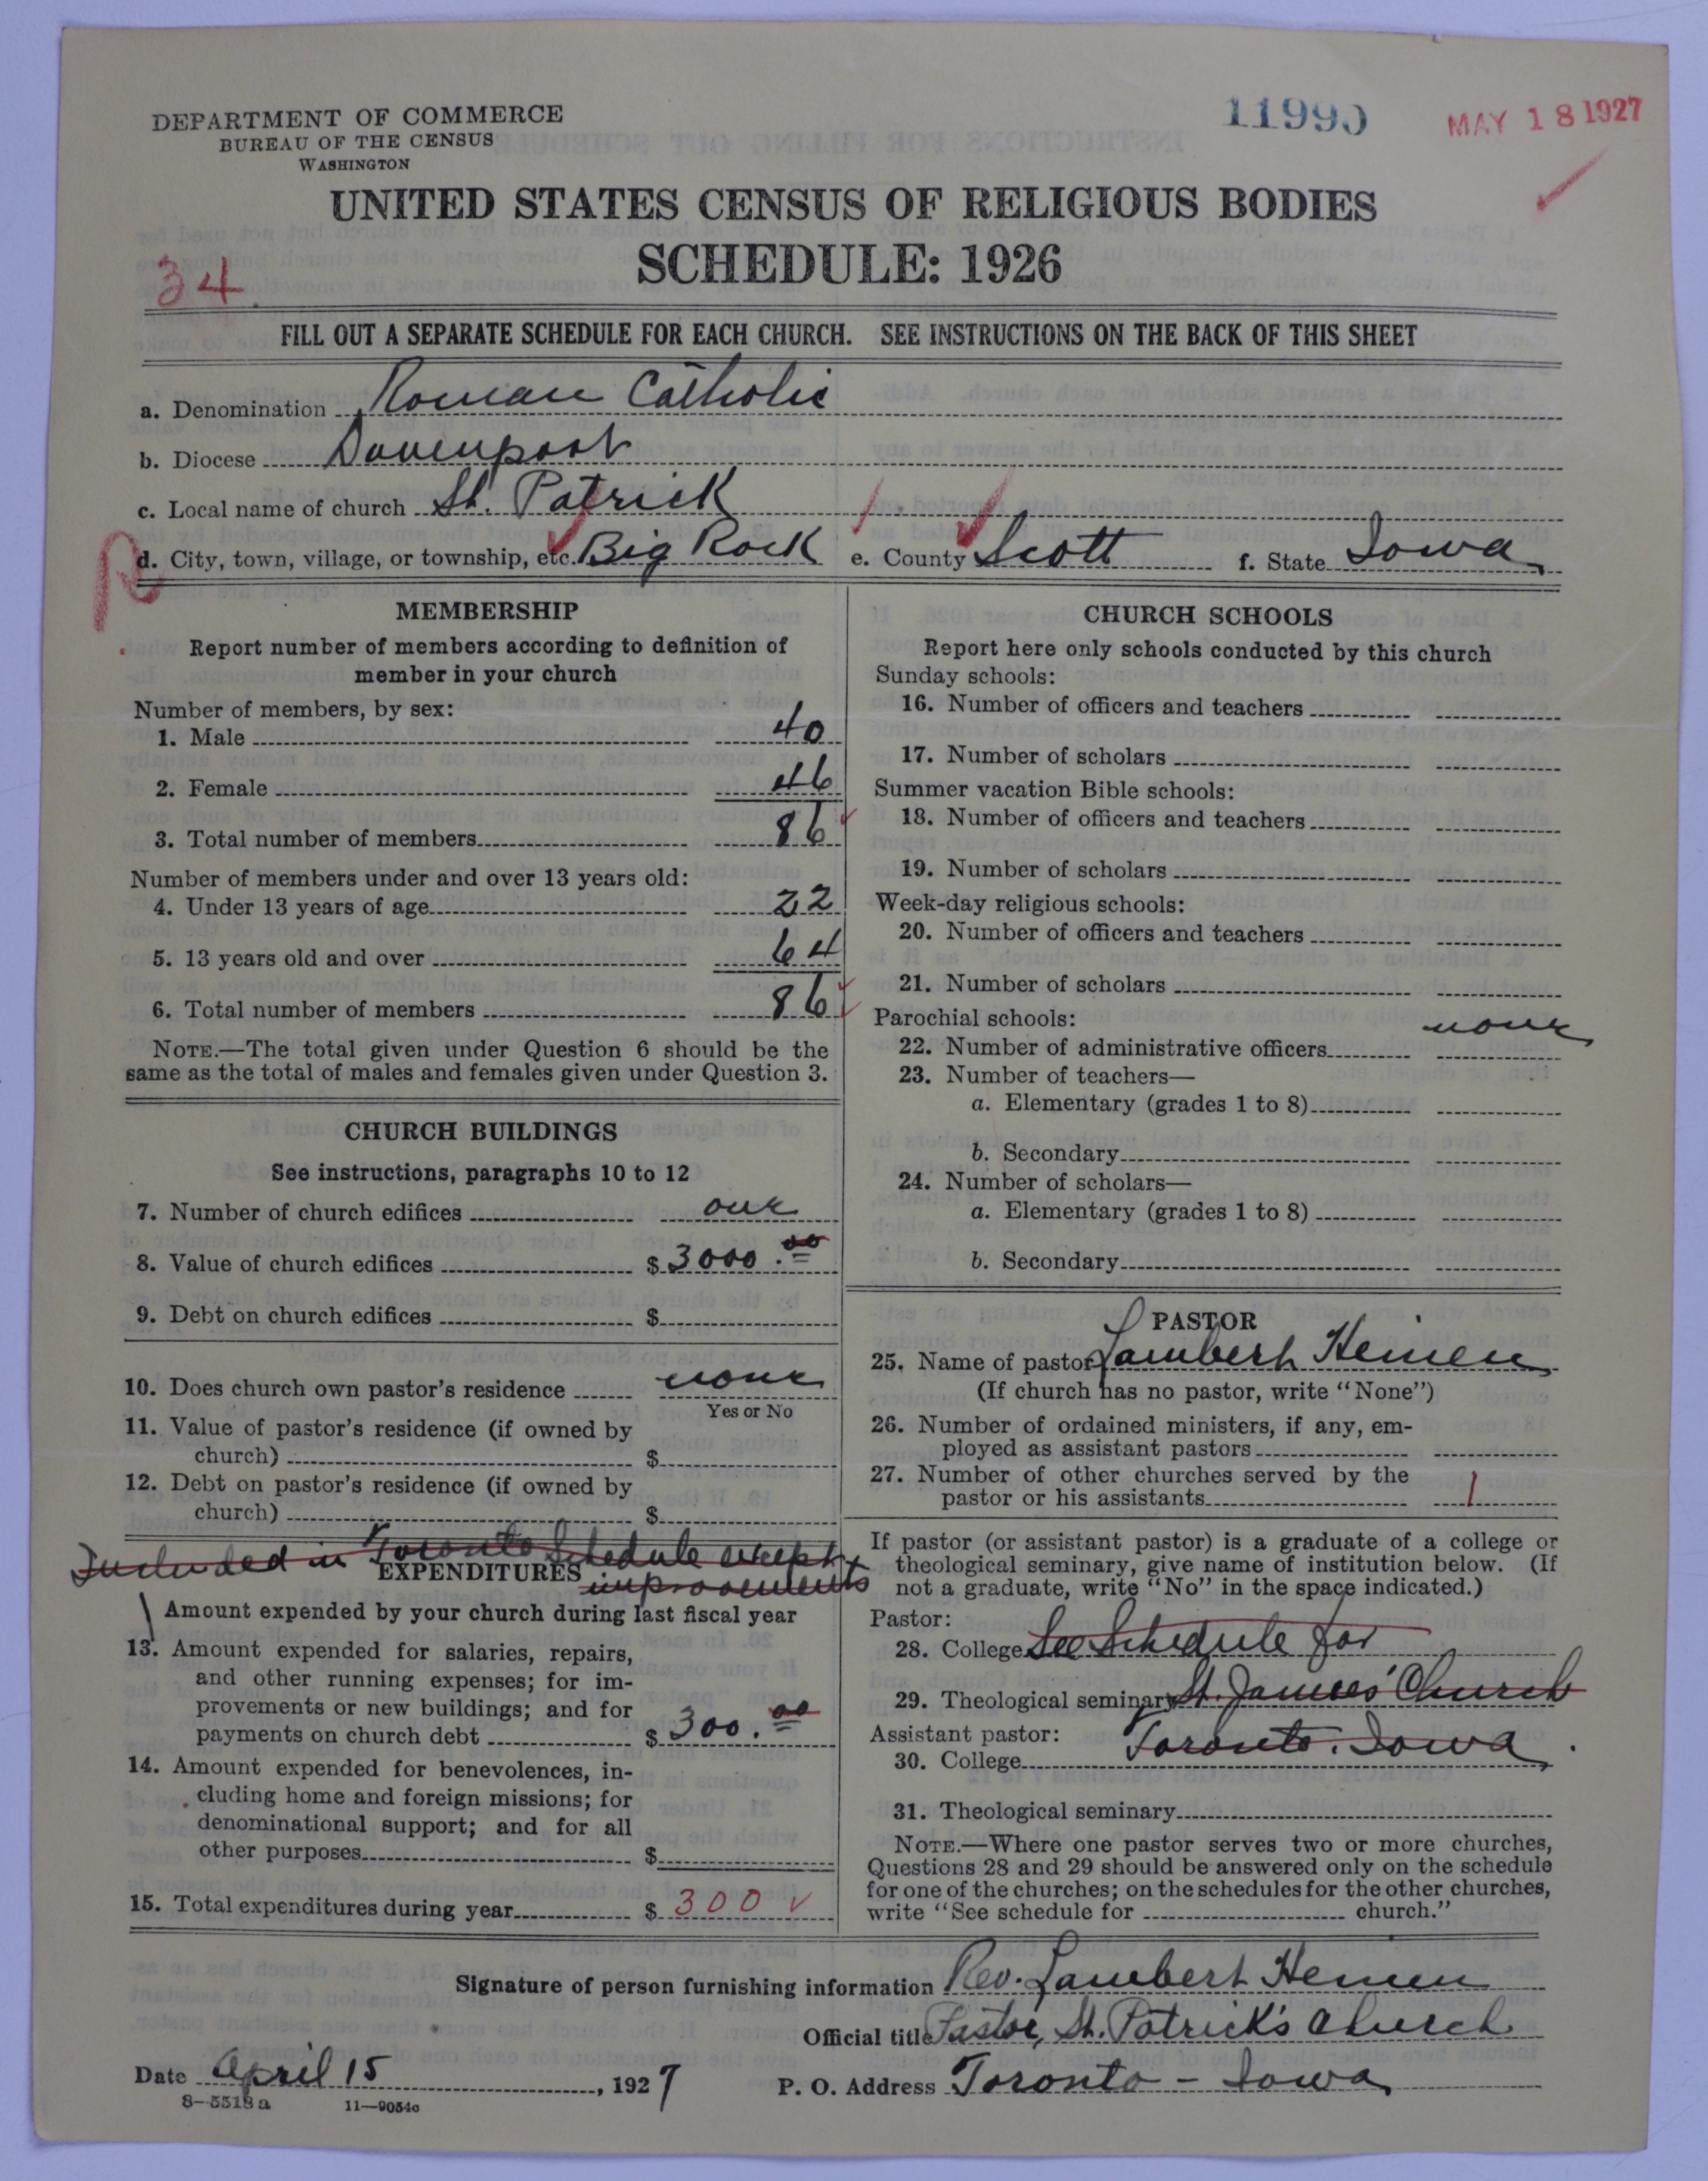 DEPARTMENT OF COMMERCE
BUREAU OF THE CENSUS
WASHINGTON
11990
MAY 18 1927
UNITED STATES CENSUS OF RELIGIOUS BODIES
SCHEDULE: 1926
34
FILL OUT A SEPARATE SCHEDULE FOR EACH CHURCH. SEE INSTRUCTIONS ON THE BACK OF THIS SHEET
a. Denomination Roman Catholic
b. Diocese Davenport
c. Local name of church St. Patrick
d. City, town, village, or township, etc. Big Rock e. County Scott f. State Iowa
MEMBERSHIP
Report number of members according to definition of
member in your church
Number of members, by sex:
1. Male 40
2. Female 46
3. Total number of members 86
Number of members under and over 13 years old:
4. Under 13 years of age 22
5. 13 years old and over 64
6. Total number of members 86
NOTE.—The total given under Question 6 should be the
same as the total of males and females given under Question 3.
CHURCH BUILDINGS
See instructions, paragraphs 10 to 12
7. Number of church edifices one
8. Value of church edifices $ 3000.00
9. Debt on church edifices $
10. Does church own pastor's residence none
Yes or No
11. Value of pastor's residence (if owned by
church) $
12. Debt on pastor's residence (if owned by
church) $
Included in Toronto Schedule except
EXPENDITURES improvements
Amount expended by your church during last fiscal year
13. Amount expended for salaries, repairs,
and other running expenses; for im-
provements or new buildings; and for
payments on church debt $ 300.00
14. Amount expended for benevolences, in-
cluding home and foreign missions; for
denominational support; and for all
other purposes $
15. Total expenditures during year $ 300
CHURCH SCHOOLS
Report here only schools conducted by this church
Sunday schools:
16. Number of officers and teachers
17. Number of scholars
Summer vacation Bible schools:
18. Number of officers and teachers
19. Number of scholars
Week-day religious schools:
20. Number of officers and teachers
21. Number of scholars
Parochial schools: none
22. Number of administrative officers
23. Number of teachers—
a. Elementary (grades 1 to 8)
b. Secondary
24. Number of scholars—
a. Elementary (grades 1 to 8)
b. Secondary
PASTOR
25. Name of pastor Lambert Heinen
(If church has no pastor, write "None")
26. Number of ordained ministers, if any, em-
ployed as assistant pastors
27. Number of other churches served by the
pastor or his assistants 1
If pastor (or assistant pastor) is a graduate of a college or
theological seminary, give name of institution below. (If
not a graduate, write "No" in the space indicated.)
Pastor:
28. College See Schedule for
29. Theological seminary St. James' Church
Assistant pastor:
30. College Toronto. Iowa.
31. Theological seminary
NOTE.—Where one pastor serves two or more churches,
Questions 28 and 29 should be answered only on the schedule
for one of the churches; on the schedules for the other churches,
write "See schedule for church."
Signature of person furnishing information Rev. Lambert Heinen
Official title Pastor, St. Patrick's Church
Date April 15, 1927 P. O. Address Toronto - Iowa
8-5518a 11-9054c